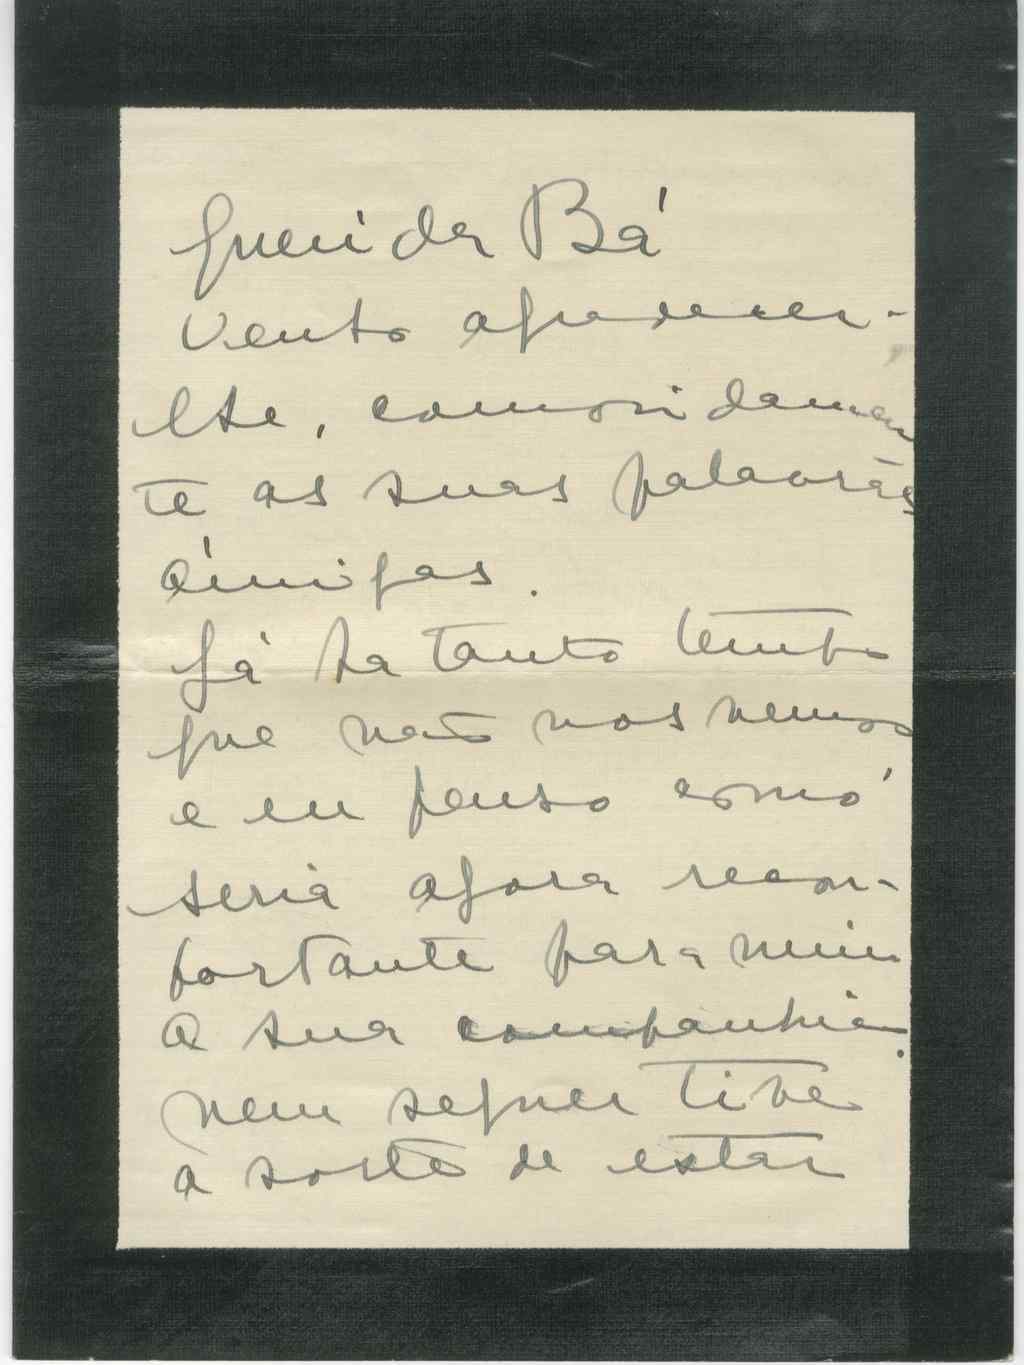 Querida Bá
Venho agradecer-
lhe, comovidamen
te as suas palavras
amigas.
Já ha tanto tempo
que não nos vemos
e eu penso como
seria agora recon-
fortante para mim
a sua companhia.
Nem sequer tive
a sorte de estar